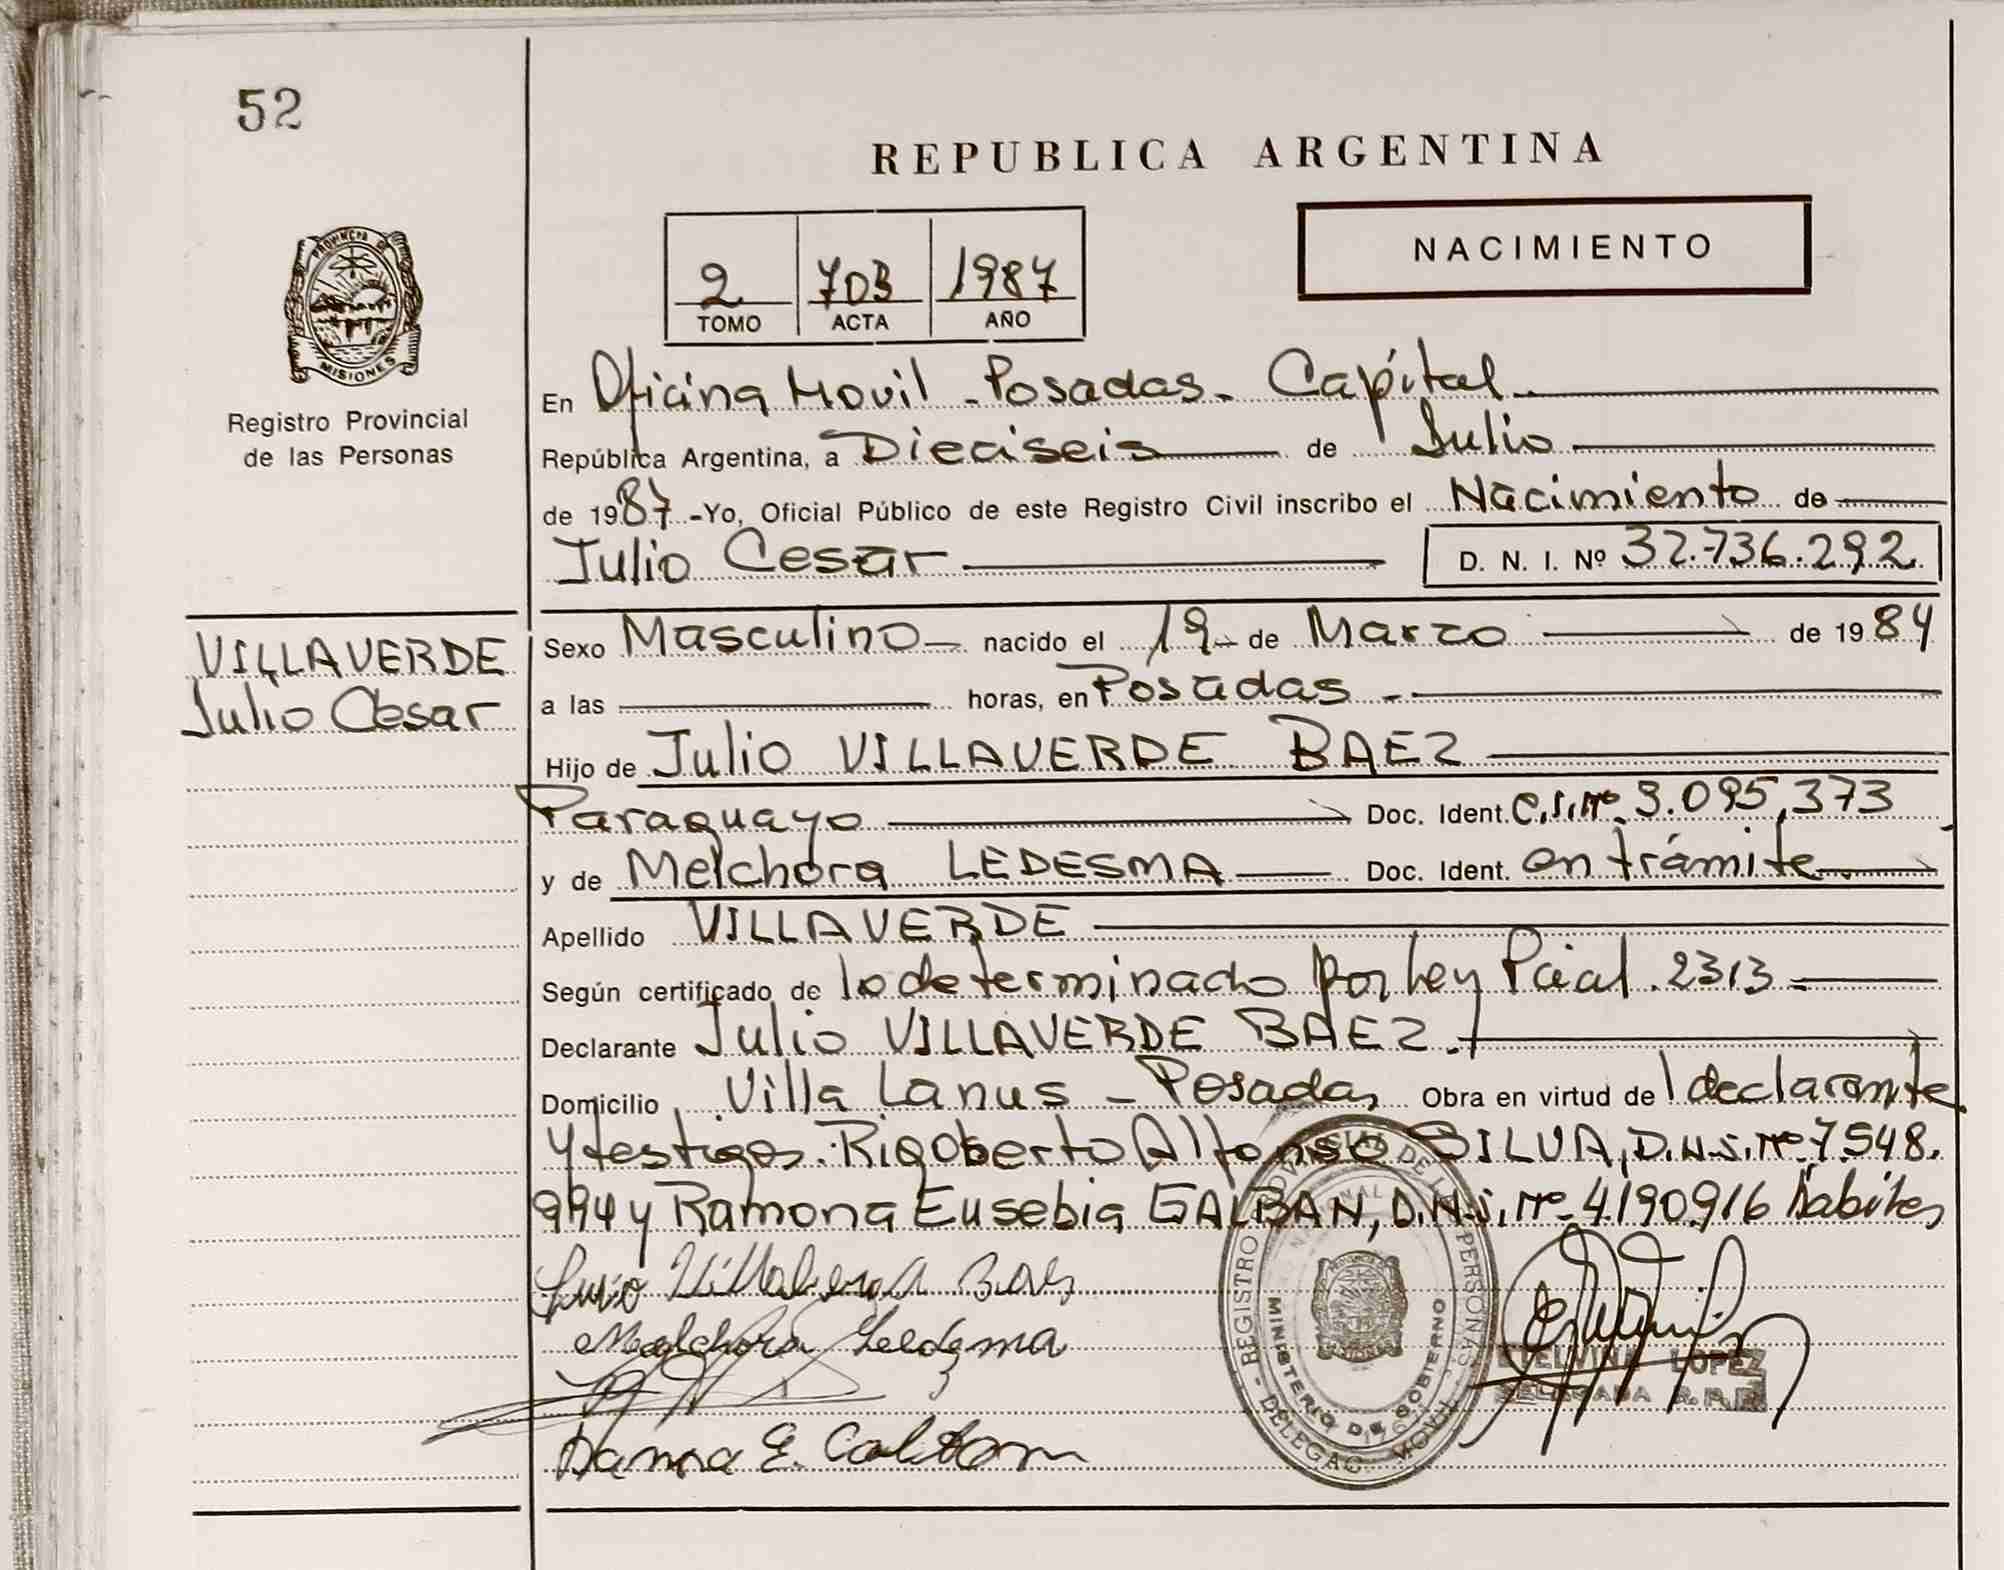 52
REPUBLICA ARGENTINA
NACIMIENTO
2 703 1987
TOMO ACTA AÑO
PROVINCIA DE
MISIONES
Registro Provincial
de las Personas
En Oficina Movil - Posadas - Capital
República Argentina, a Dieciseis de Julio
de 1987 - Yo, Oficial Público de este Registro Civil inscribo el Nacimiento de
Julio Cesar D. N. I. Nº 32.736.292
VILLAVERDE
Julio Cesar
Sexo Masculino nacido el 19 de Marzo de 1984
a las horas, en Posadas -
Hijo de Julio VILLAVERDE BAEZ
Paraguayo Doc. Ident. C.I.Nº 3.095.373
y de Melchora LEDESMA Doc. Ident. en trámite
Apellido VILLAVERDE
Según certificado de lo determinado por Ley Pcial. 2313
Declarante Julio VILLAVERDE BAEZ.
Domicilio Villa Lanus - Posadas Obra en virtud de l declarante
y testigos. Rigoberto Alfonso SILVA, D.N.I. Nº 7.548.
994 y Ramona Eusebia GALBAN, D.N.I. Nº 4.190.916 habiles
Melchora Ledezma
REGISTRO PROVINCIAL DE LAS PERSONAS
MINISTERIO DE GOBIERNO
DELEGAC MOVIL
LOPEZ
DELEGADA R.P.P.